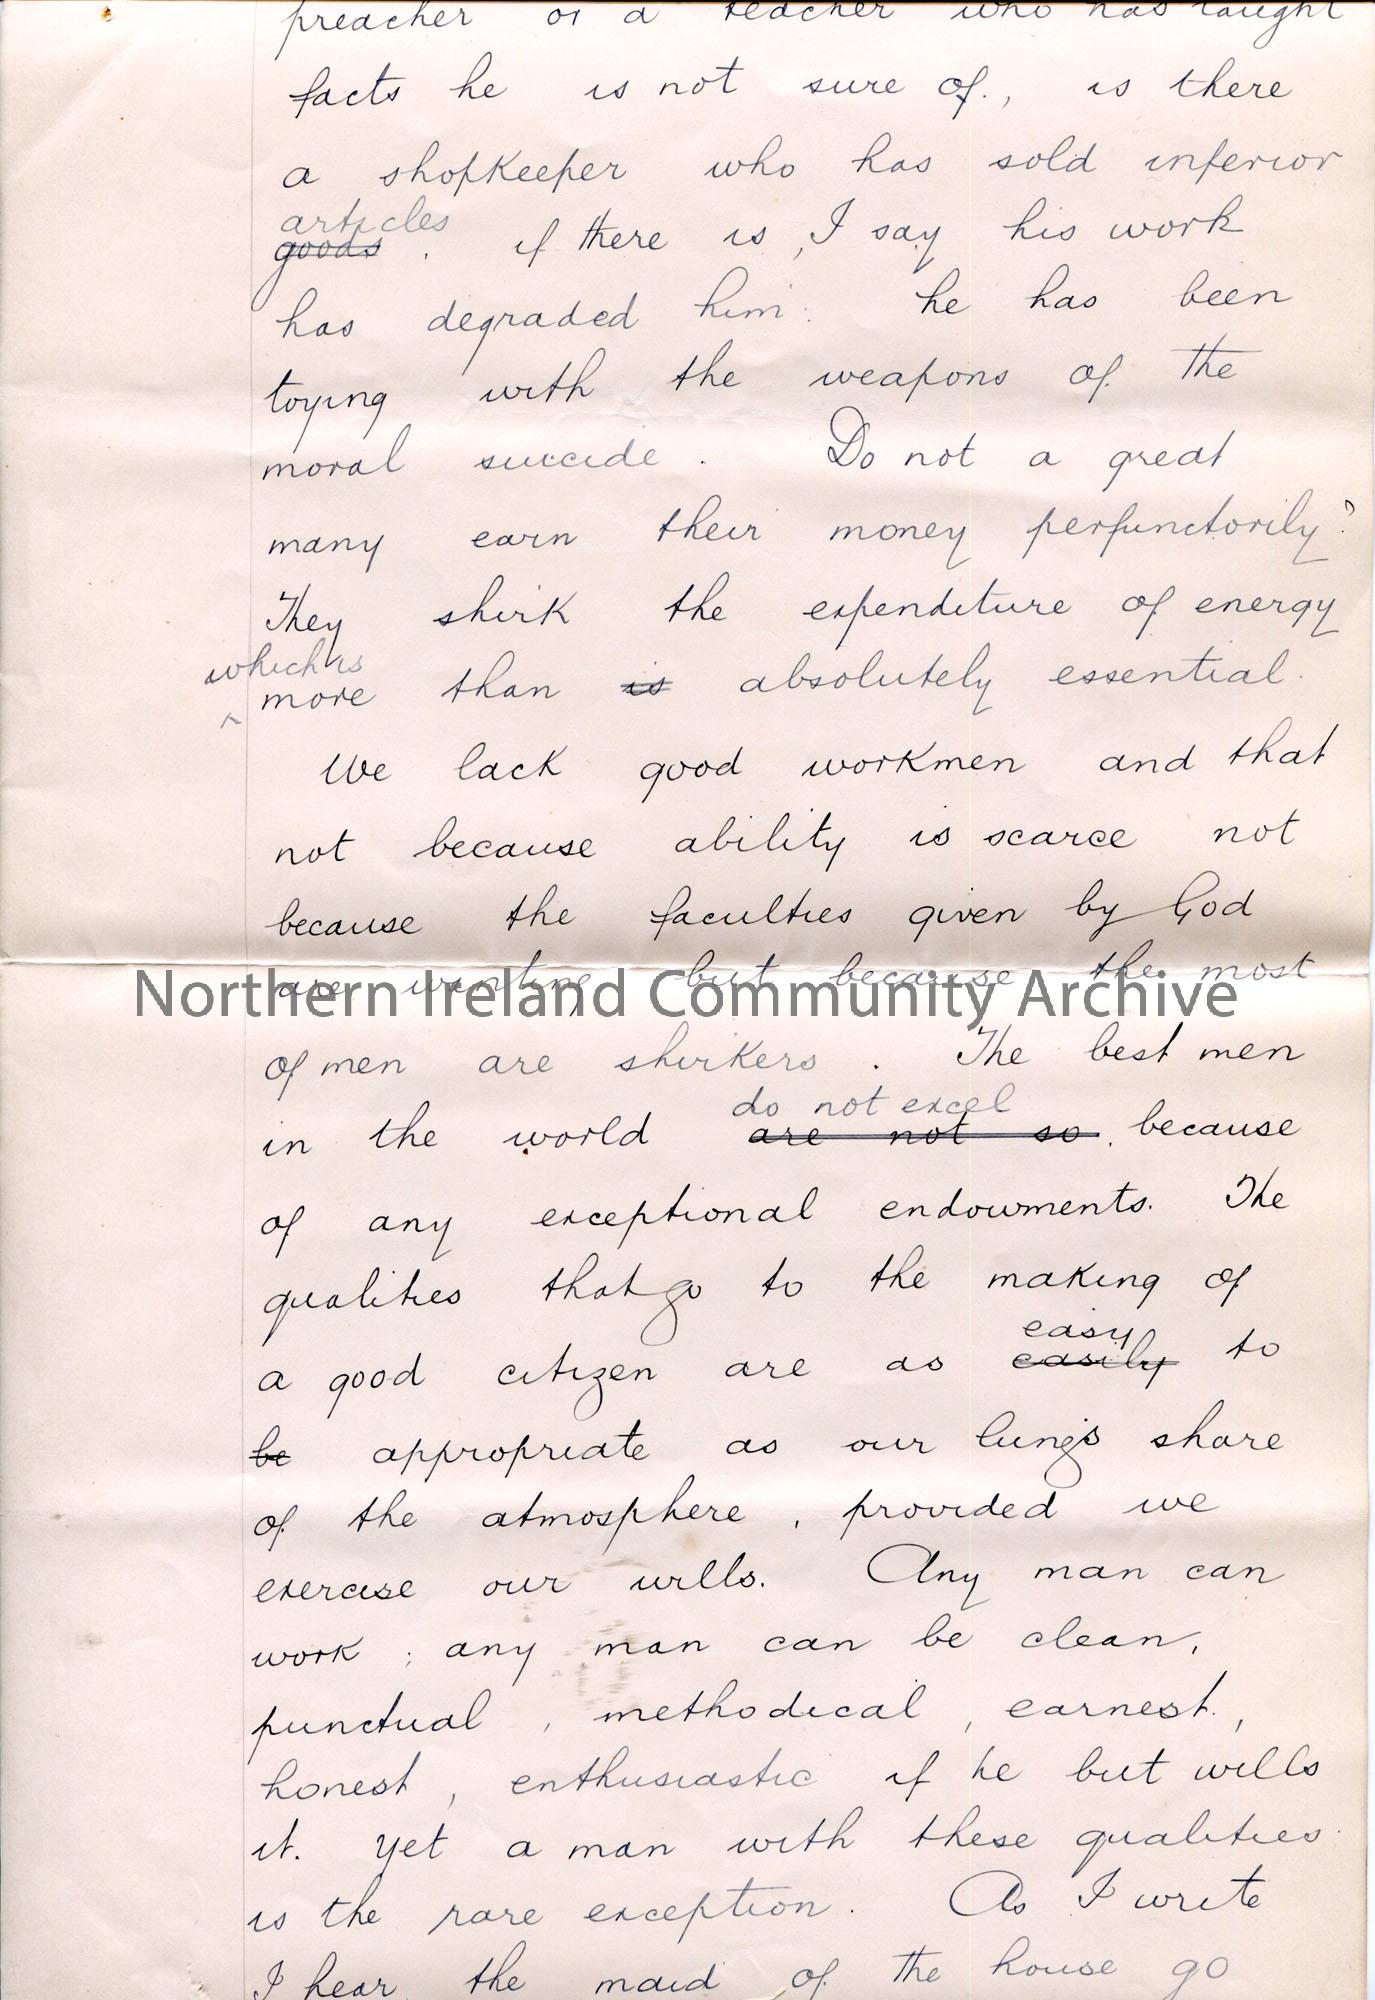 preacher or a teacher who has taught
facts he is not sure of., is there
a shopkeeper who has sold inferior
articles
goods . if there is, I say his work
has degraded him. he has been
toying with the weapons of the
moral suicide. Do not a great
many earn their money perfunctorily?
They shirk the expenditure of energy
which is
more than is absolutely essential.
We lack good workmen and that
not because ability is scarce not
because the faculties given by God
are wanting but because the most
Northern Ireland Community Archive
of men are shirkers . The best men
do not excel
in the world are not so, because
of any exceptional endowments. The
qualities that go to the making of
easy
a good citizen are as easily to
be appropriate as our lungs share
of the atmosphere, provided we
exercise our wills. Any man can
work ; any man can be clean,
punctual , methodical , earnest. ,
honest , enthusiastic if he but wills
it. yet a man with these qualities
is the rare exception. As I write
I hear the maid of the house go